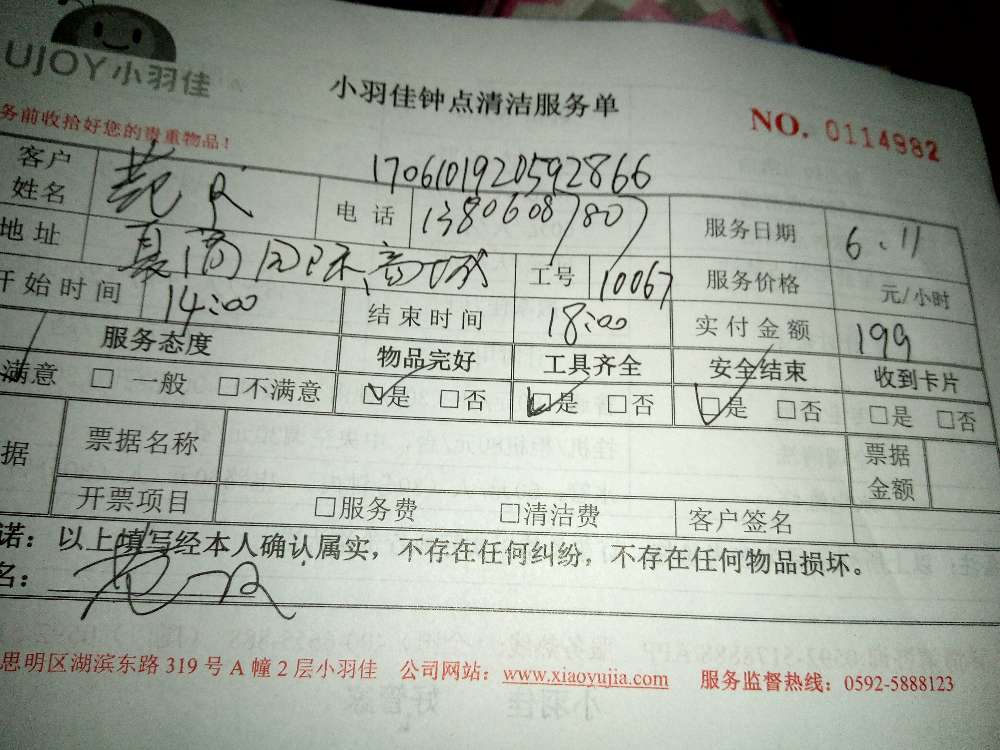 UJOY小羽佳
小羽佳钟点清洁服务单
NO. 0114982
务前收拾好您的贵重物品！
17061019205928 66
客户姓名 电话 13806087807 服务日期 6.11
地址 夏商国际商城 工号 10067 服务价格 元/小时
开始时间 14:00 结束时间 18:00 实付金额 199
服务态度 物品完好 工具齐全 安全结束 收到卡片
满意 □ 一般 □不满意 □是 □否 □是 □否 □是 □否 □是 □否
据 票据名称 票据金额
开票项目 □服务费 □清洁费 客户签名
诺：以上填写经本人确认属实，不存在任何纠纷，不存在任何物品损坏。
名：
思明区湖滨东路 319 号 A 幢 2 层小羽佳 公司网站：www.xiaoyujia.com 服务监督热线：0592-5888123